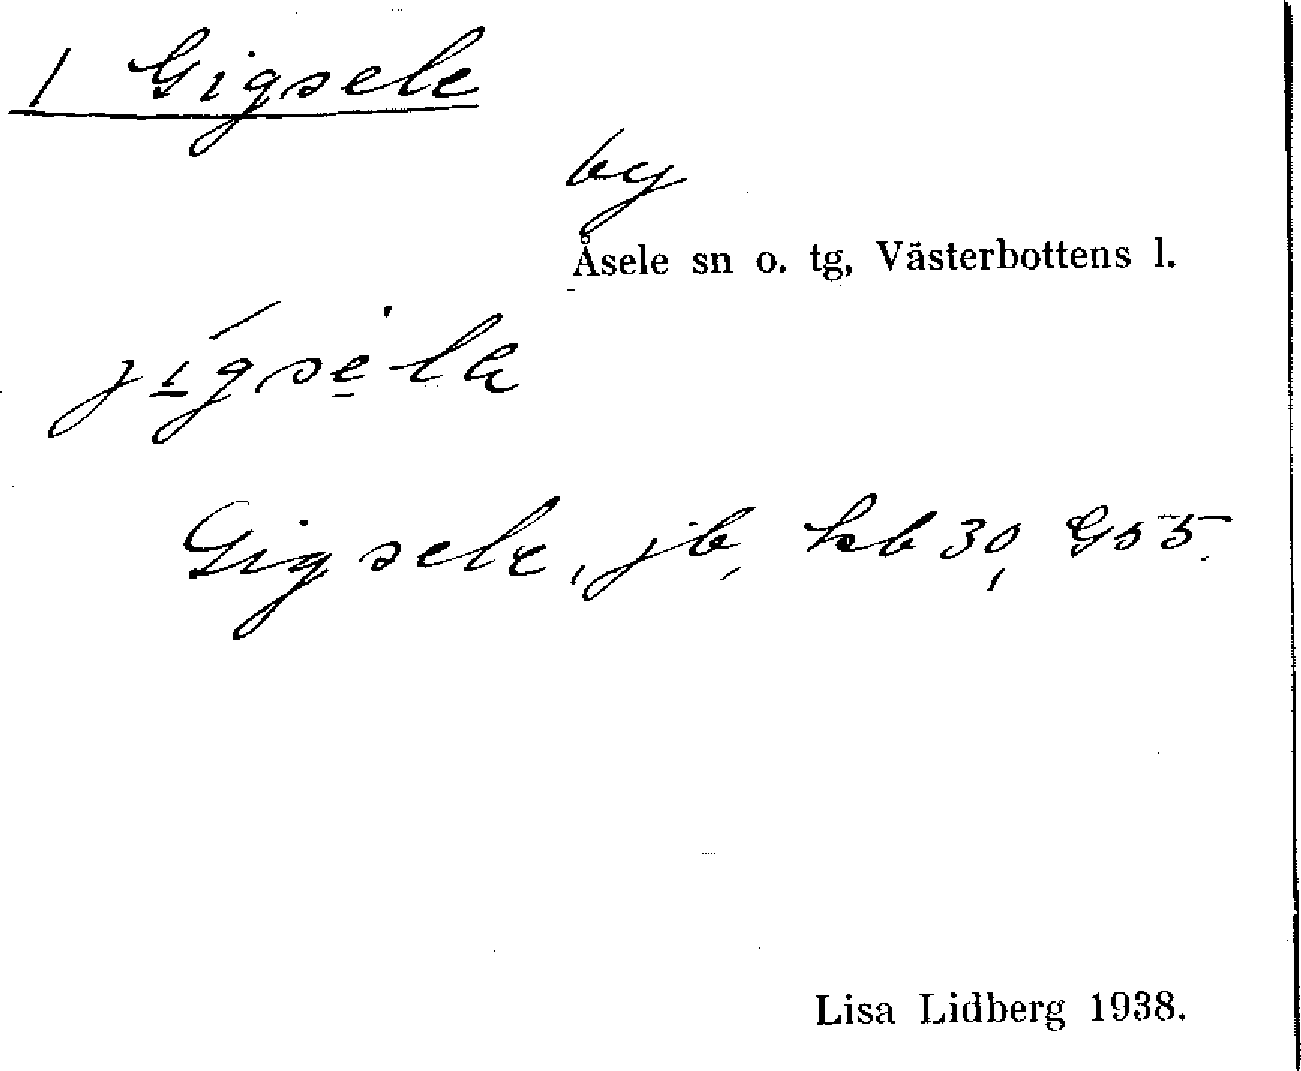 1 Gigsele
by
Åsele sn o. tg, Västerbottens l.
jigsele
Gigsele, jb, kb 30, G55.
Lisa Lidberg 1938.